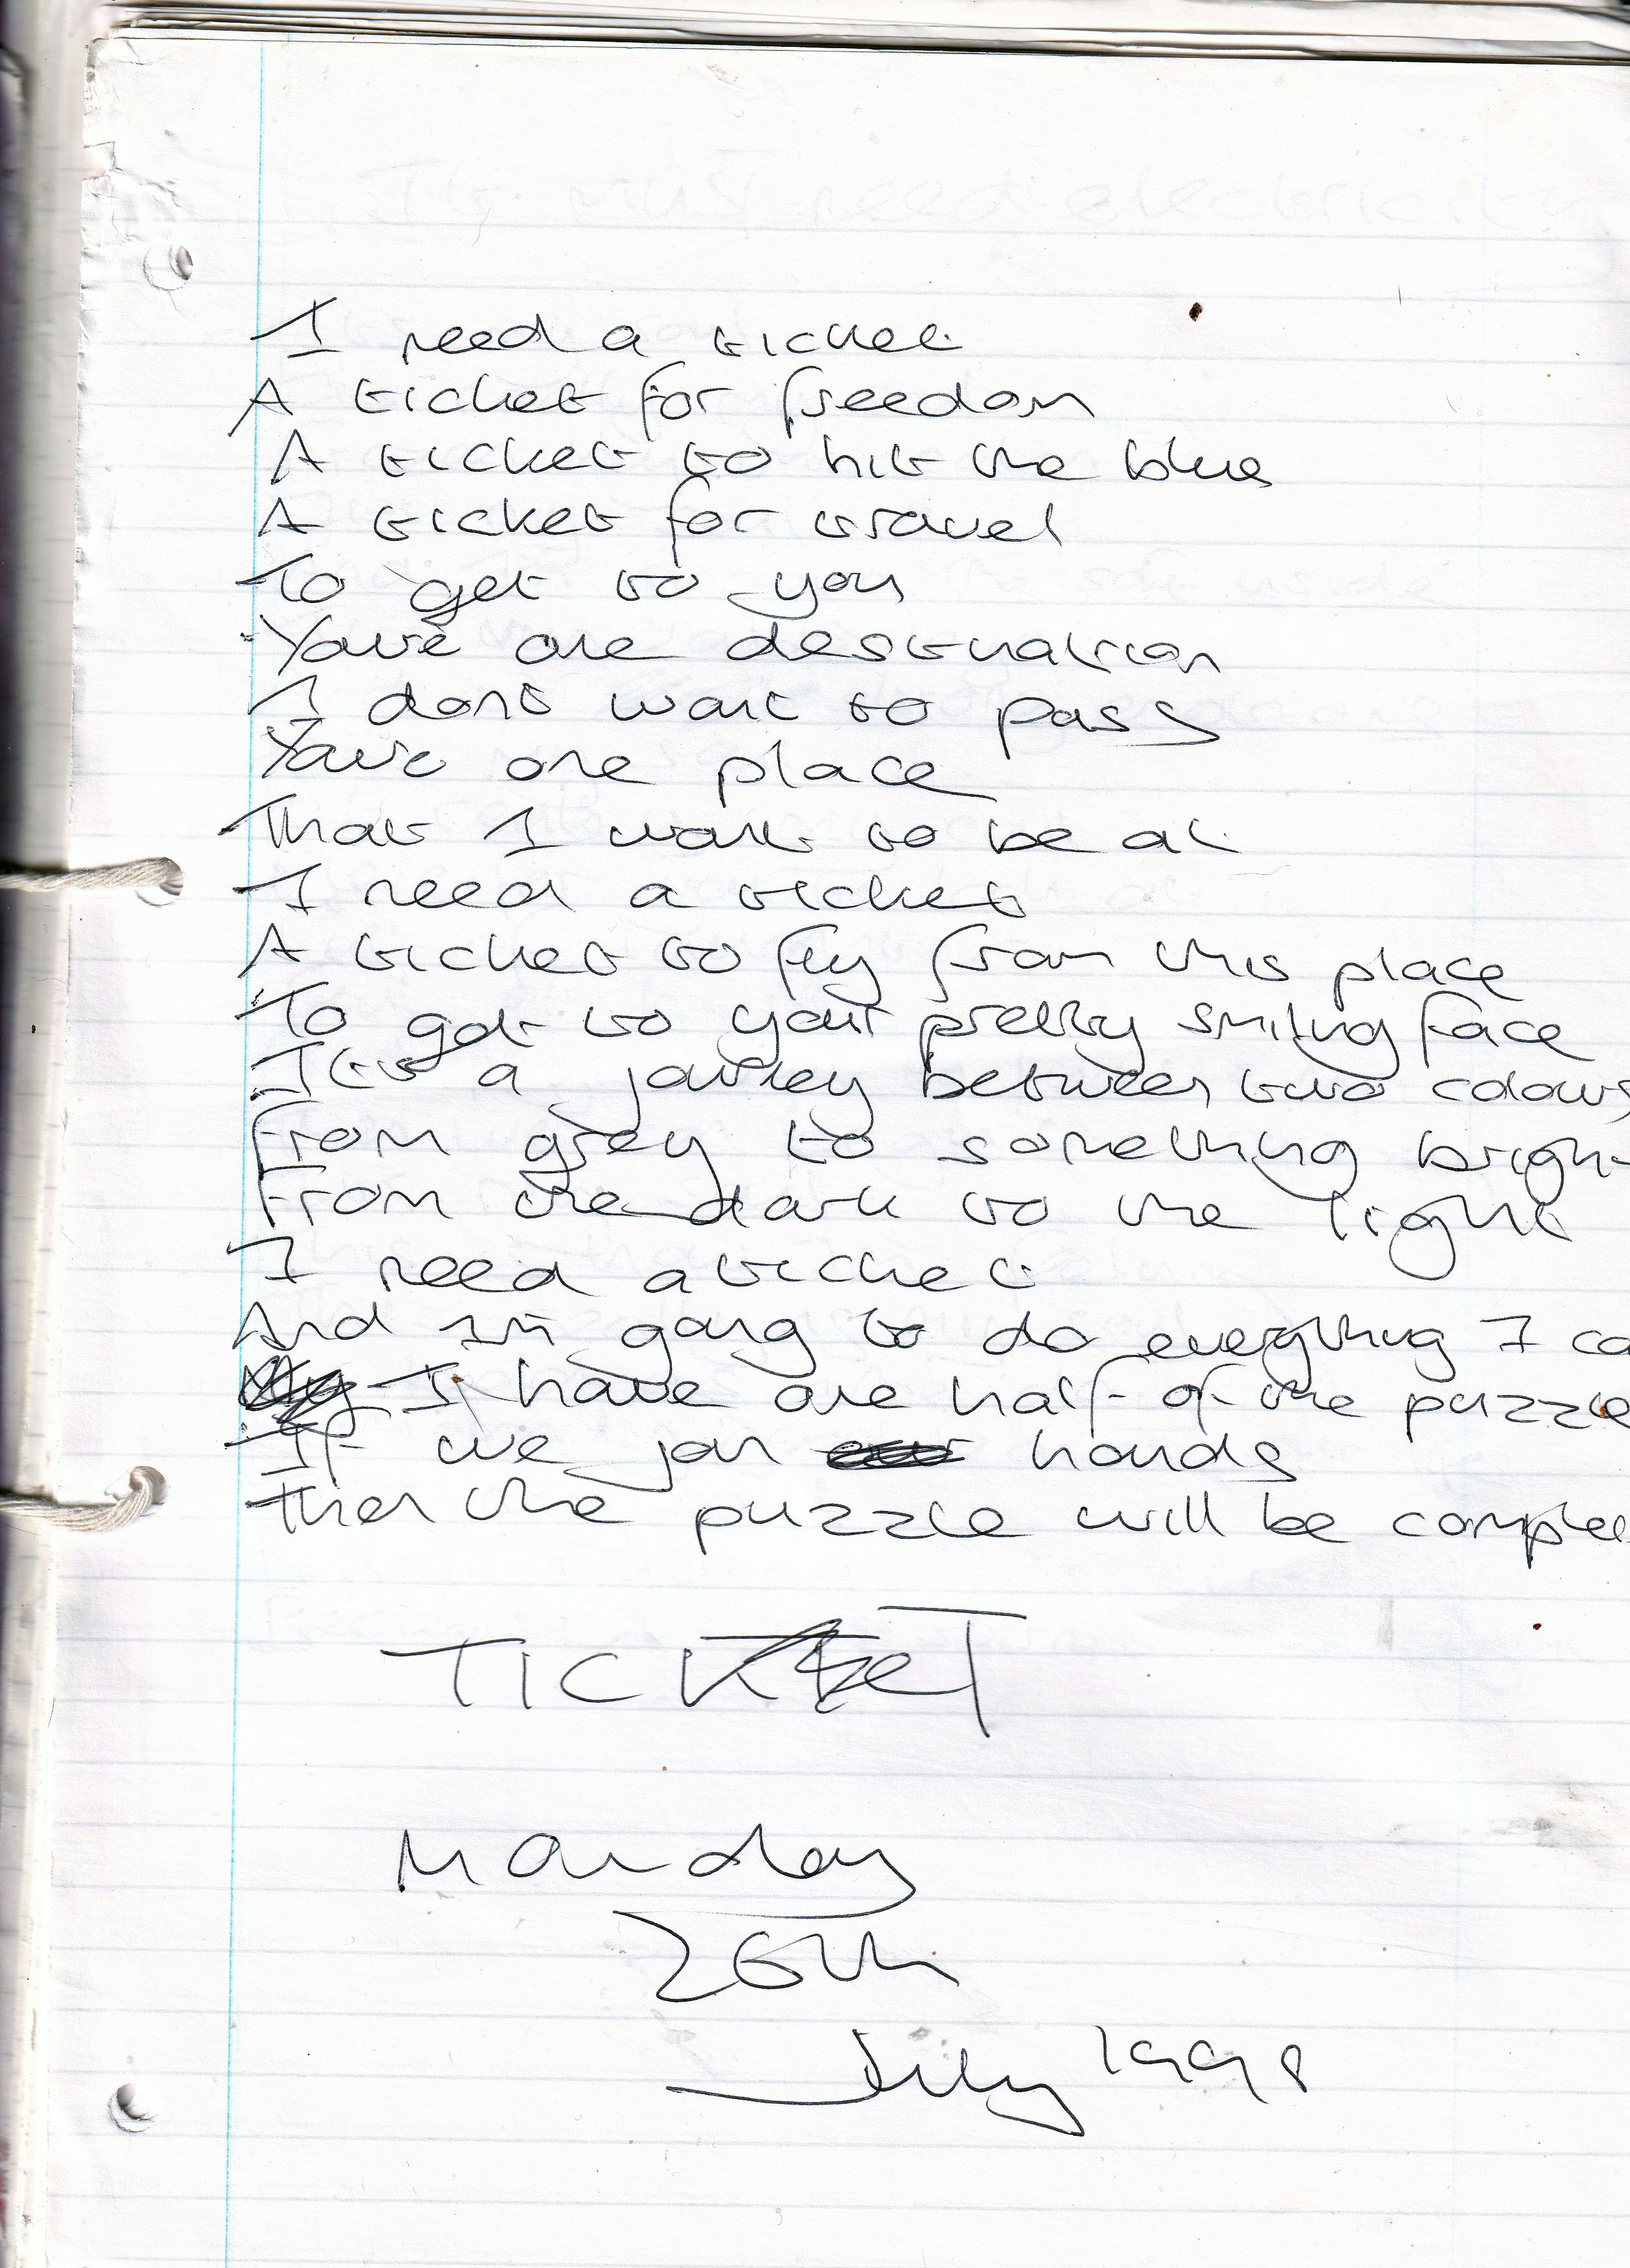 I need a ticket
A ticket for freedom
A ticket to hit the blue
A ticket for travel
To get to you
You're one destination
I don't want to pass
You're one place
That I want to be at
I need a ticket
A ticket to fly from this place
To get to your pretty smiling face
It's a journey between two colours
From grey to something brigh
From the dark to the light
I need a ticket
And I'm going to do everything I ca
I have one half of the puzzle
If we join hands
Then the puzzle will be comple
TICKET
Monday
26th
July 1998